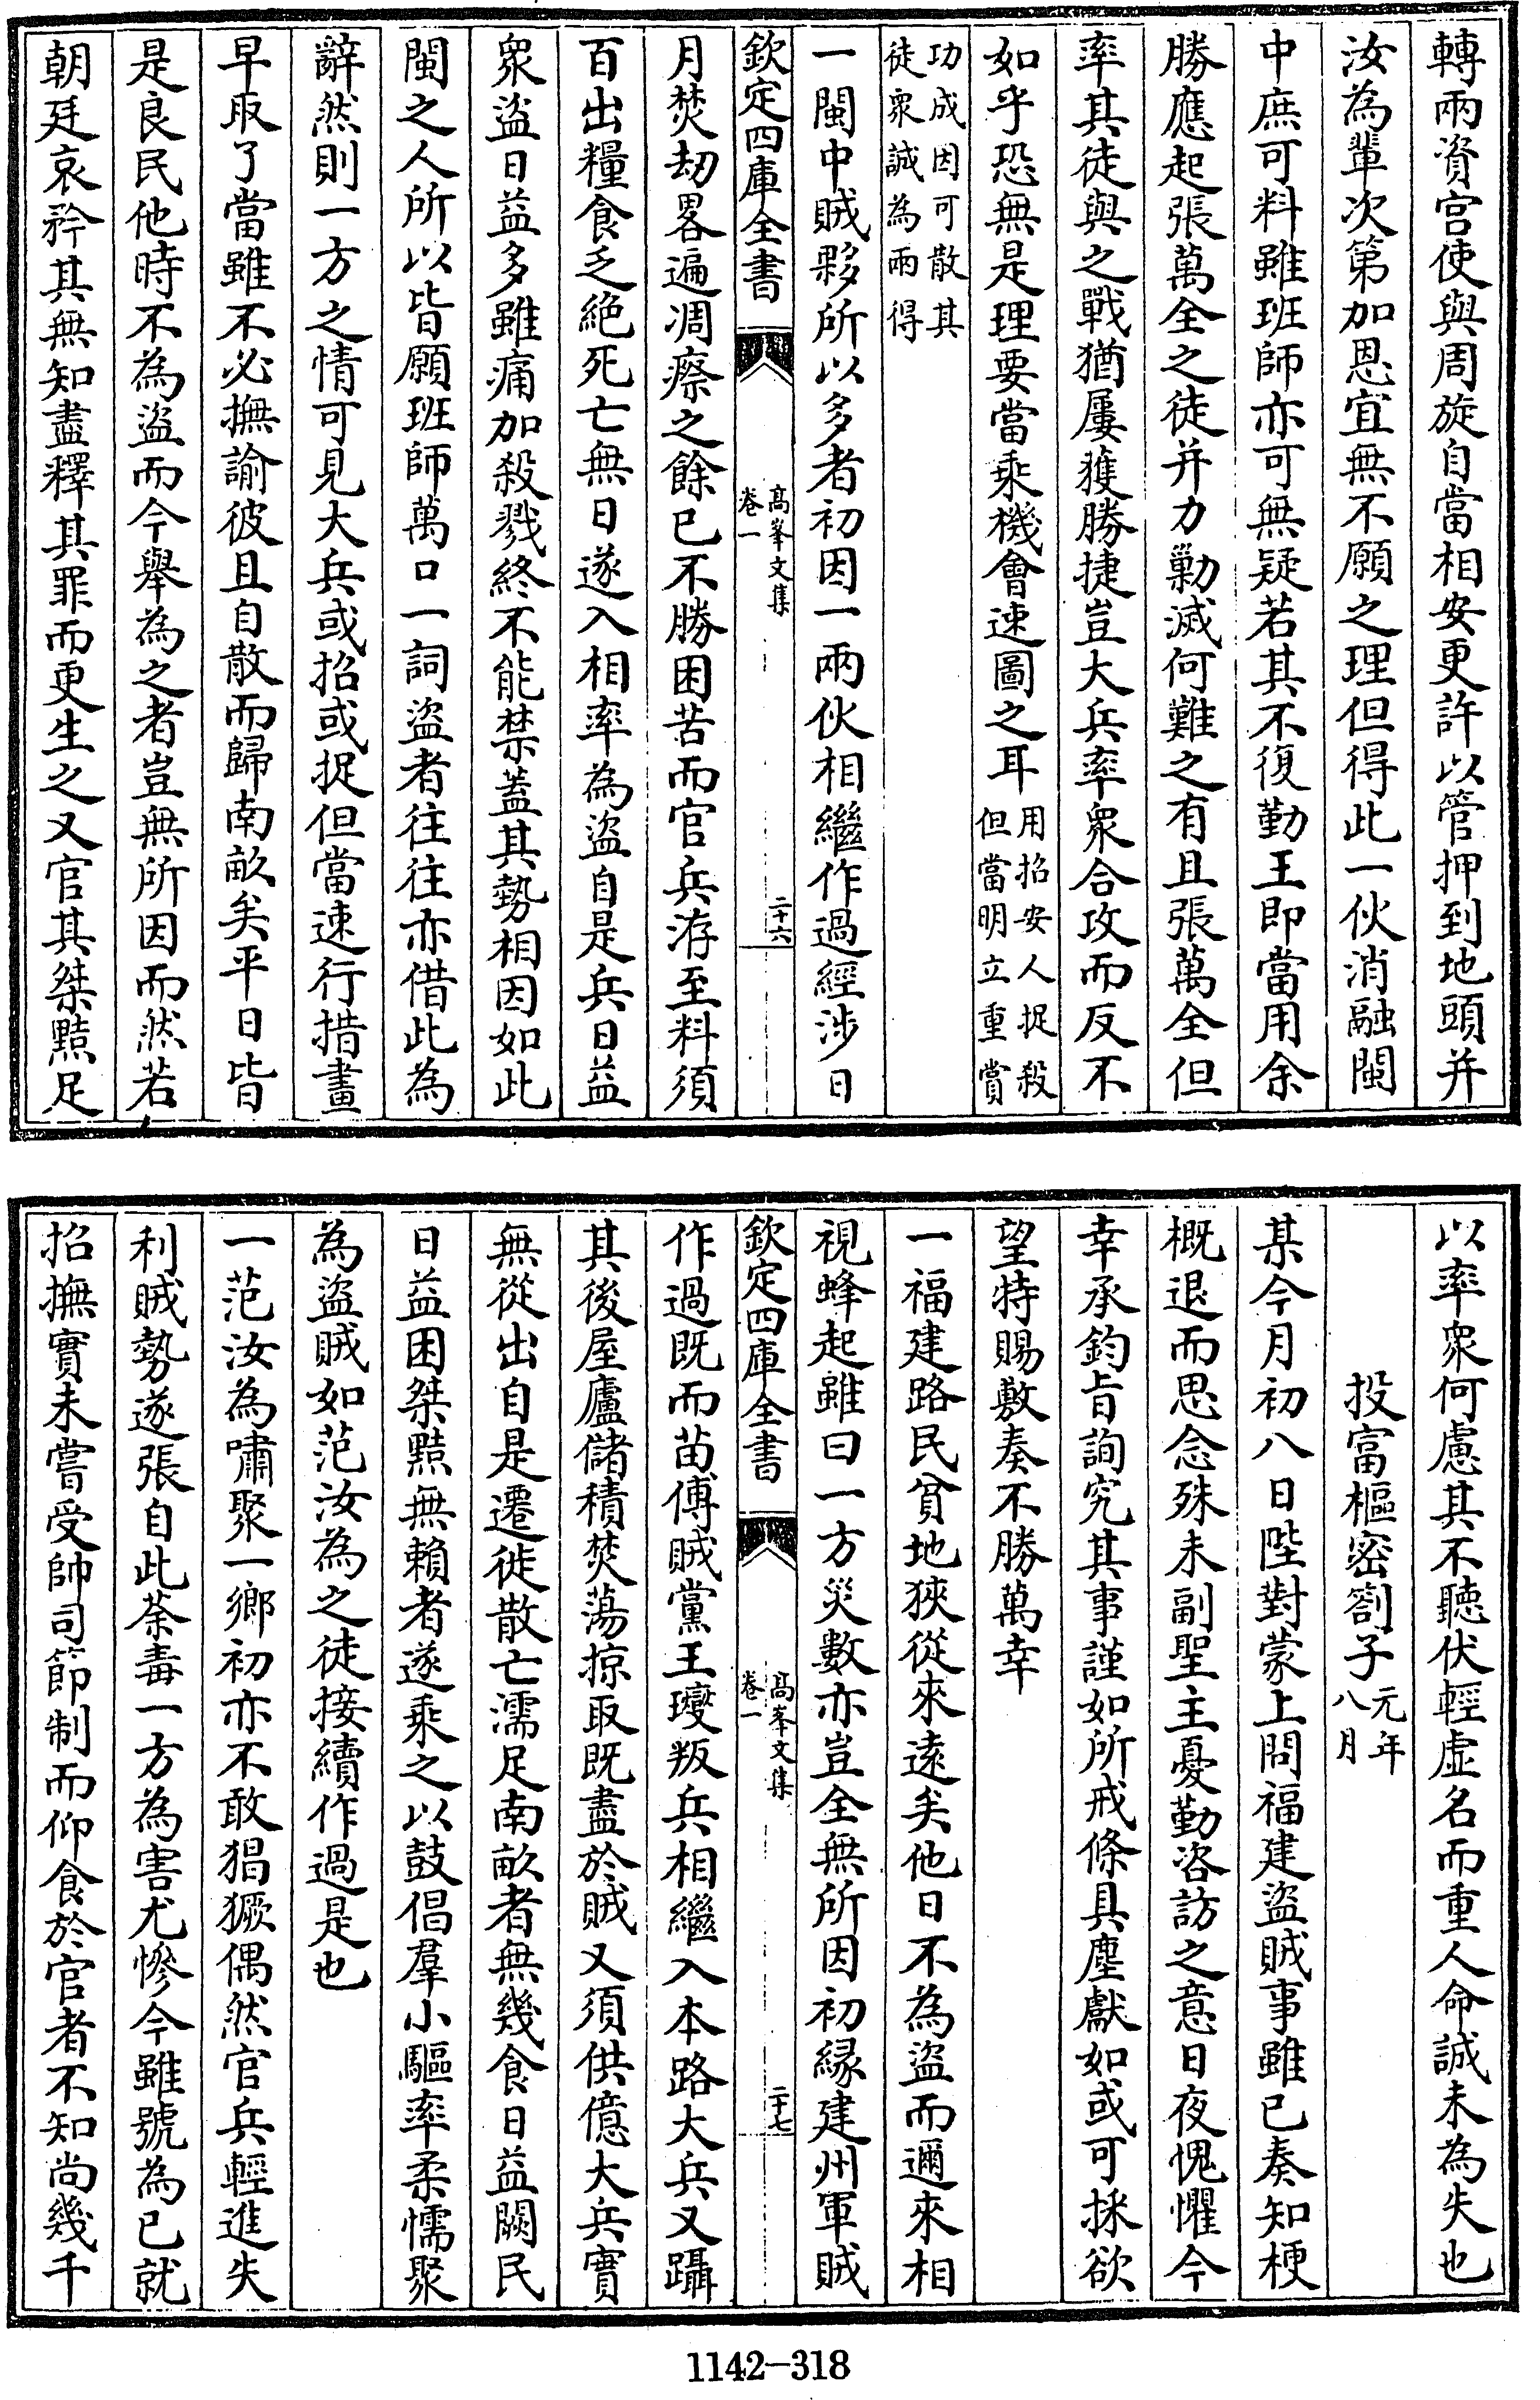 轉兩資宫使與周旋自當相安更許以管押到地頭并
汝為輩次第加恩宜無不願之理但得此一伙消融閩
中庶可料雖班師亦可無疑若其不復勤王即當用余
勝應起張萬全之徒并力勦滅何難之有且張萬全但
率其徒與之戰猶屢獲勝捷豈大兵率衆合攻而反不
如乎恐無是理要當乘機會速圖之耳用招安人捉殺
但當明立重賞
功成因可散其
徒衆誠為兩得
一閩中賊夥所以多者初因一兩伙相繼作過經涉日
欽定四庫全書
髙峯文集
卷一
二十六
月焚刼畧遍凋瘵之餘已不勝困苦而官兵洊至料須
百出糧食乏絶死亡無日遂入相率為盜自是兵日益
衆盜日益多雖痛加殺戮終不能禁蓋其勢相因如此
閩之人所以皆願班師萬口一詞盜者往往亦借此為
辭然則一方之情可見大兵或招或捉但當速行措畫
早取了當雖不必撫諭彼且自散而歸南畝矣平日皆
是良民他時不為盜而今舉為之者豈無所因而然若
朝廷哀矜其無知盡釋其罪而更生之又官其桀黠足
以率衆何慮其不聽伏輕虚名而重人命誠未為失也
投富樞密劄子元年
八月
某今月初八日陛對蒙上問福建盜賊事雖已奏知梗
概退而思念殊未副聖主憂勤咨訪之意日夜愧懼今
幸承鈞旨詢究其事謹如所戒條具塵獻如或可採欲
望特賜敷奏不勝萬幸
一福建路民貧地狹從來逺矣他日不為盜而邇來相
視蜂起雖曰一方災數亦豈全無所因初縁建州軍賊
欽定四庫全書
髙峯文集
卷一
二十七
作過既而苗傅賊黨王㺬叛兵相繼入本路大兵又躡
其後屋廬儲積焚蕩掠取既盡於賊又須供億大兵實
無從出自是遷徙散亡濡足南畝者無幾食日益闕民
日益困桀黠無賴者遂乘之以鼓倡羣小驅率柔懦聚
為盜賊如范汝為之徒接續作過是也
一范汝為嘯聚一鄉初亦不敢猖獗偶然官兵輕進失
利賊勢遂張自此荼毒一方為害尤慘今雖號為已就
招撫實未嘗受帥司節制而仰食於官者不知尚幾千
1142-318